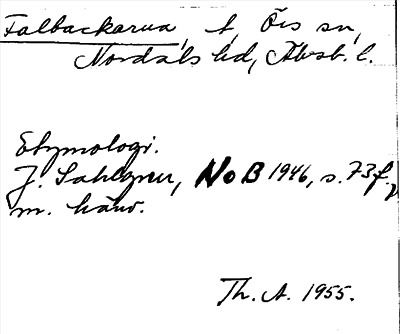 Falbackarna, t, Örs sn,
Nordals hd, Älvsb. l.
Etymologi.
J. Sahlgren, NoB 1946, s. 73 f.,
m. hänv.
Th. A. 1955.